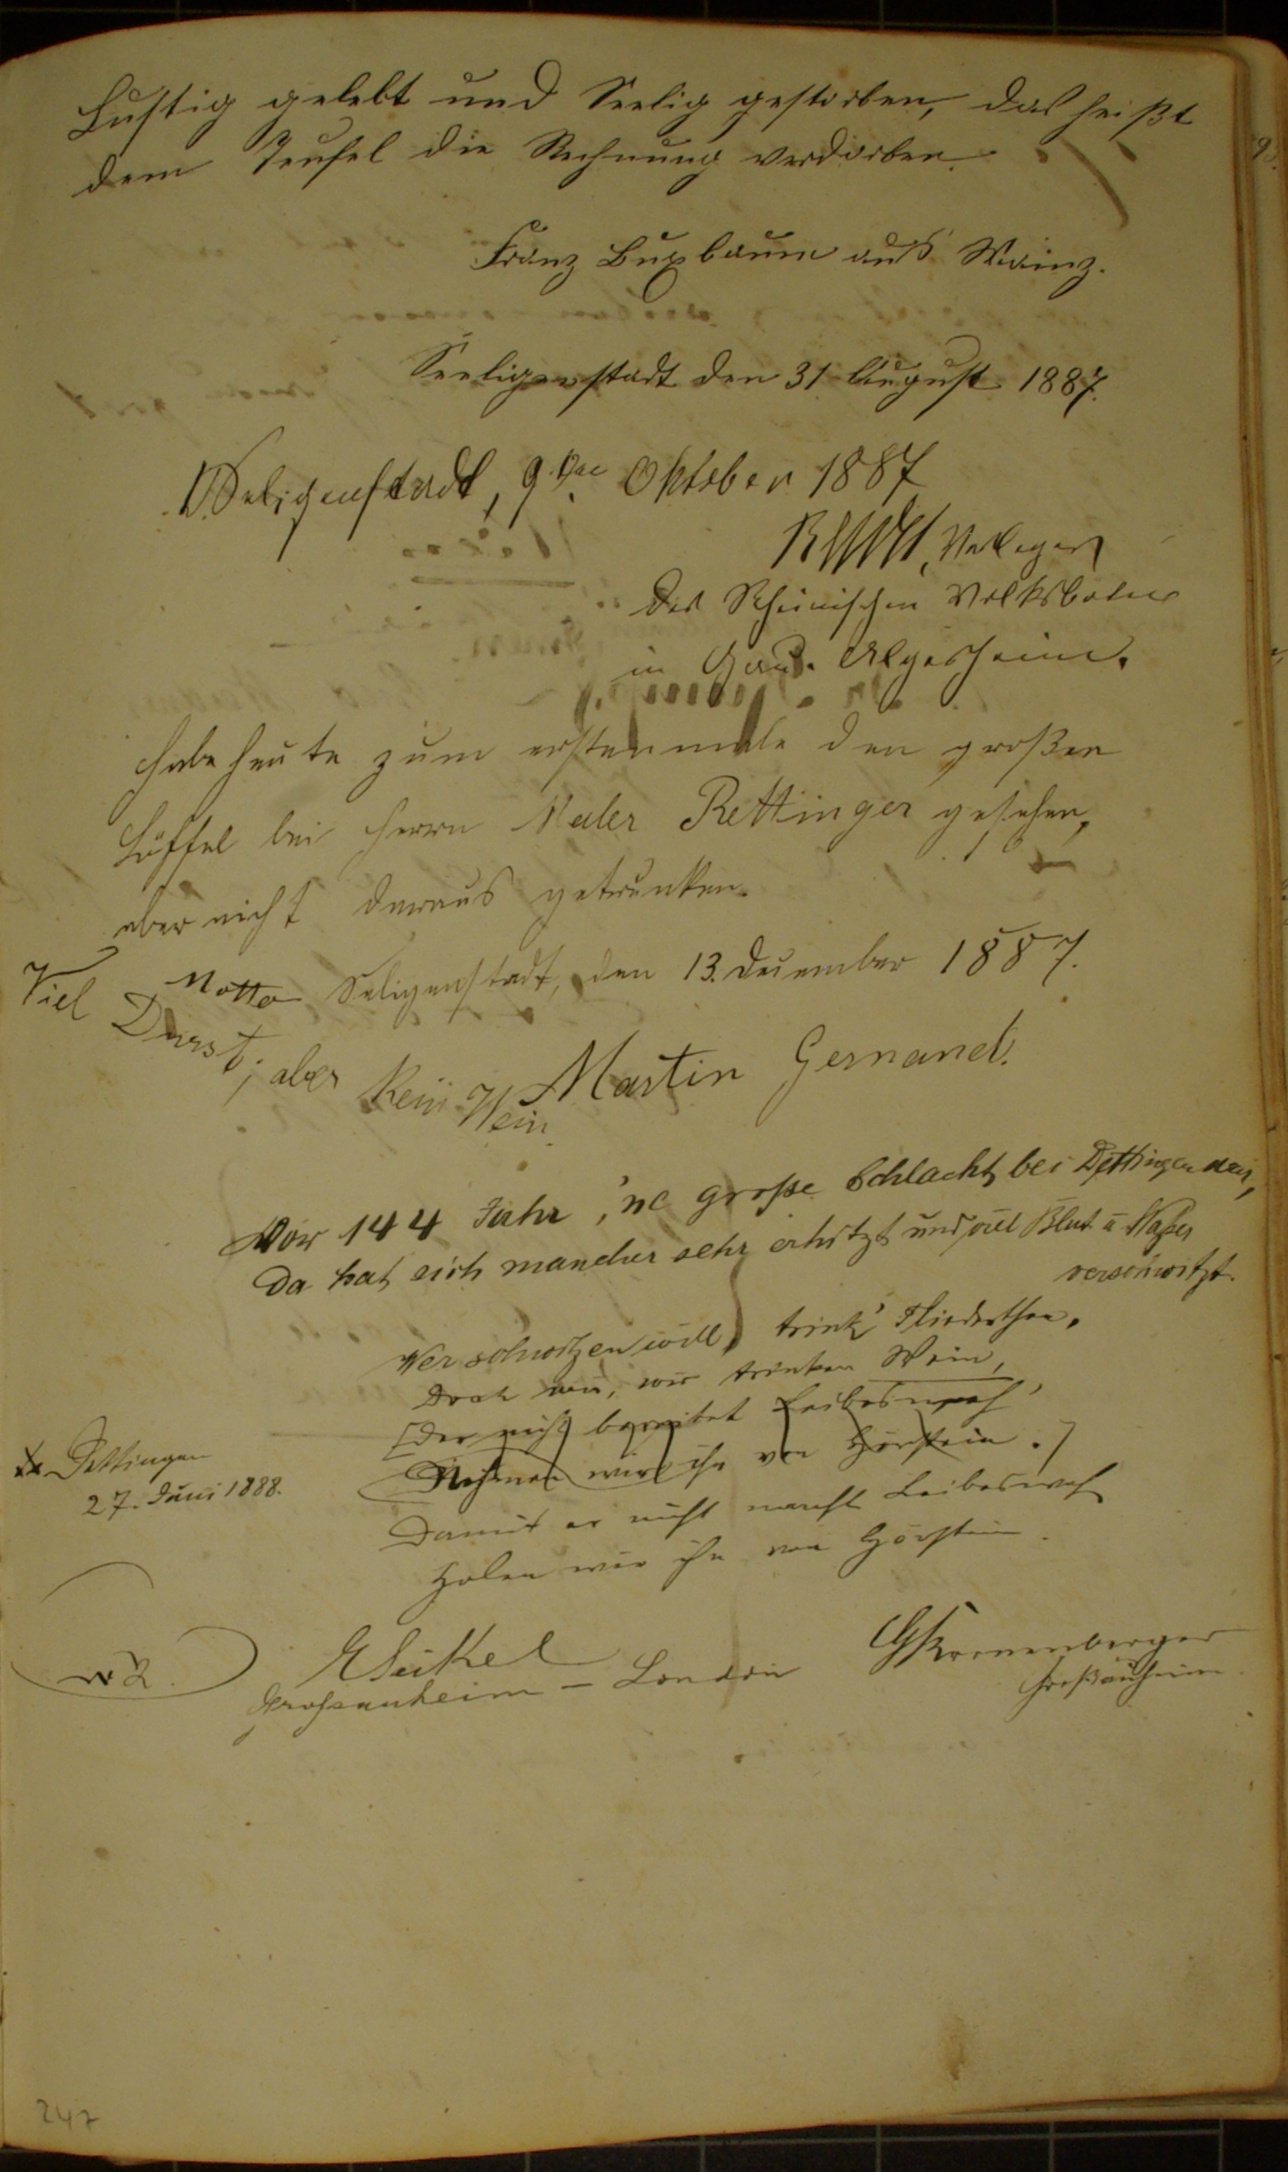 Lustig gelebt und Seelig gestorben, das heißt
dem Teufel die Rechnung verdorben.
Franz Buxbaum aus Mainz.
Seeligenstadt den 31 August 1887.
Seligenstadt, 9ten Oktober 1887
Verleger
des Rheinischen Volksboten
in Gau-Algesheim.
Habe heute zum erstenmale den großen
Löffel bei Herrn Maler Rettinger gesehen,
aber nicht daraus getrunken.
Seligenstadt, den 13. Dezember 1887.
Motto
Viel Durst, aber kein Wein
Martin Gernand.
Vor 144 Jahr, 'ne große Schlacht bei Dettingen war,
Da hat sich mancher sehr erhitzt und viel Blut u Wasser
verschwitzt.
Wer schwitzen will, trink' Fliederthee,
Doch wir, wir trinken Wein,
[Der nicht bereitet Leibesweh,
Nehmen wir ihn von Hörstein.]
Damit er nicht macht Leibesweh
Holen wir ihn von Hörstein.
Dettingen
27. Juni 1888.
E Seikel
Grossauheim – London
G Kronenberger
Großauheim
247